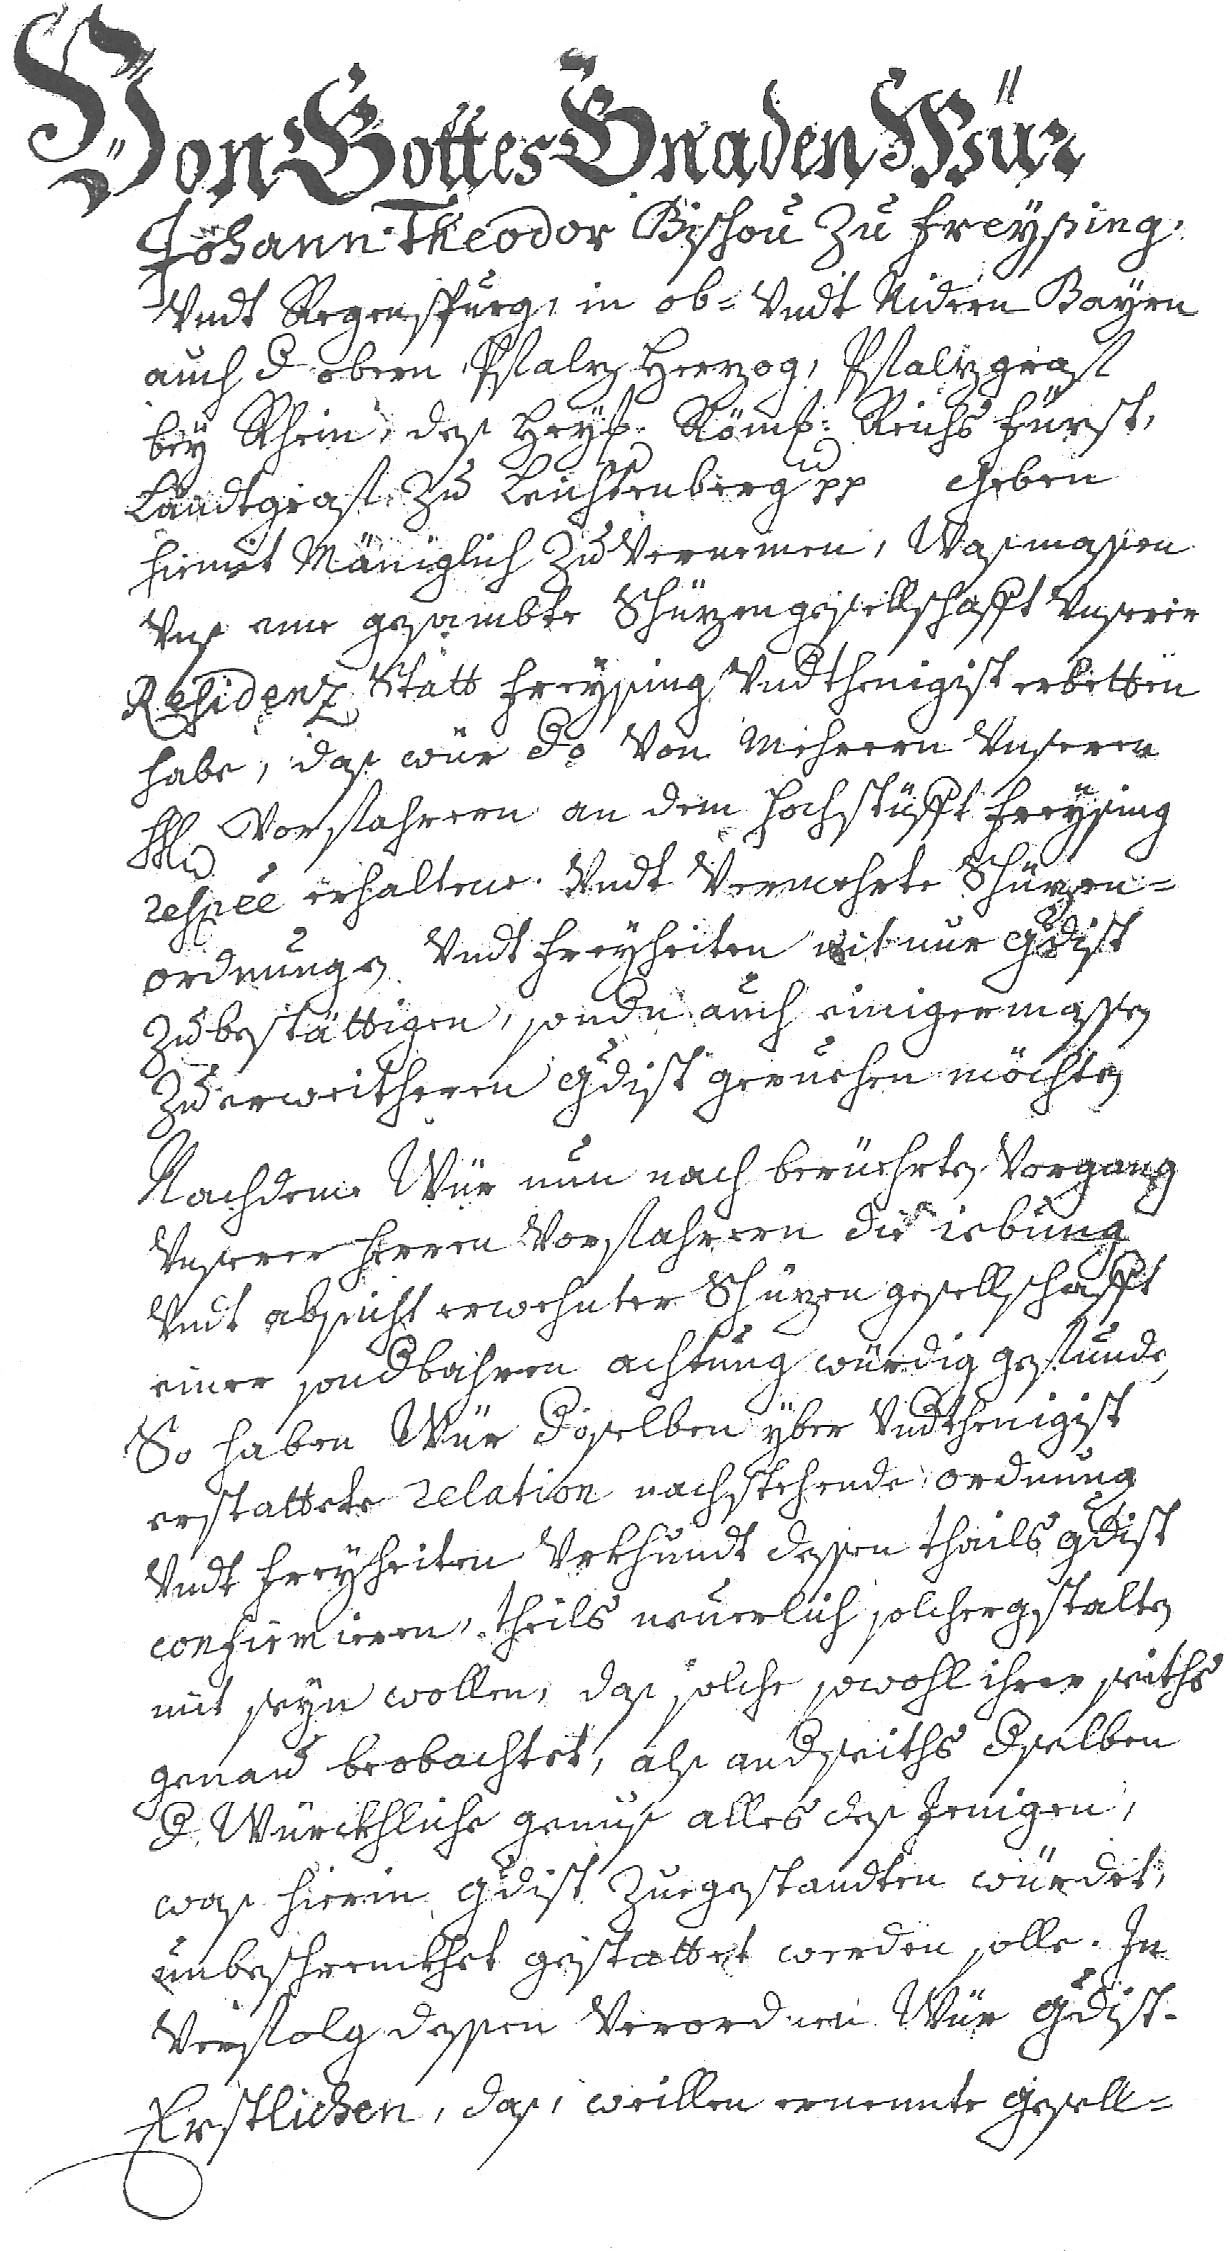 Von Gottes Gnaden Wür
Johann Theodor Bischou zu Freysing,
Vndt Regenspurg, in ob- Vndt Nidern Bayrn
auch d obern Pfalz Herzog, Pfalzgraf
bey Rhein, des Heyl: Röml: Reichs Fürst,
Landtgraf zu Leichtenberg pp Geben
hiemit Mäniglich zu Vernemen, Wasmassen
Vns eine gesambte Schüzengesellschafft Vnserer
Residenz Statt Freysing Vndthenigist erbetten
habe, das wür do Von Mehrern Vnserer
Vorfahrern an dem Hochstüfft Freysing
respée erhaltene Vndt Vermehrte Schüzen-
ordnung Vndt Freyheiten nit nur gdist
zu bestättigen, sondn auch einigermassen
zu erweithern gdist geruehen möchten
Nachdeme Wür nun nach berüehrten Vorgang
Vnserer Herren Vorfahrern die iebung
Vndt absicht erwehnter Schüzengesellschafft
einer sondbahren achtung würdig gefunden,
So haben Wür dselben yber Vndthenigist
erstattete relation nachstehende ordnung
Vndt Freyheiten Vrkhundt dessen theils gdist
confirmieren, theils neuerlich solchergstalten
mit seyn wollen, das solche sowohl ihrer seiths
genau beobachtet, als andseiths dselben
d Würckhliche genus alles des Jenigen,
was hierin gdist zuegestandten würdet,
unbeschrenckhet gestattet werden solle. In
Verfolg dessen Verordnen Wür gdist.
Erstlichen, das, weillen ernennte gesell-